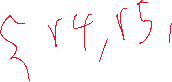 { r4, r5,